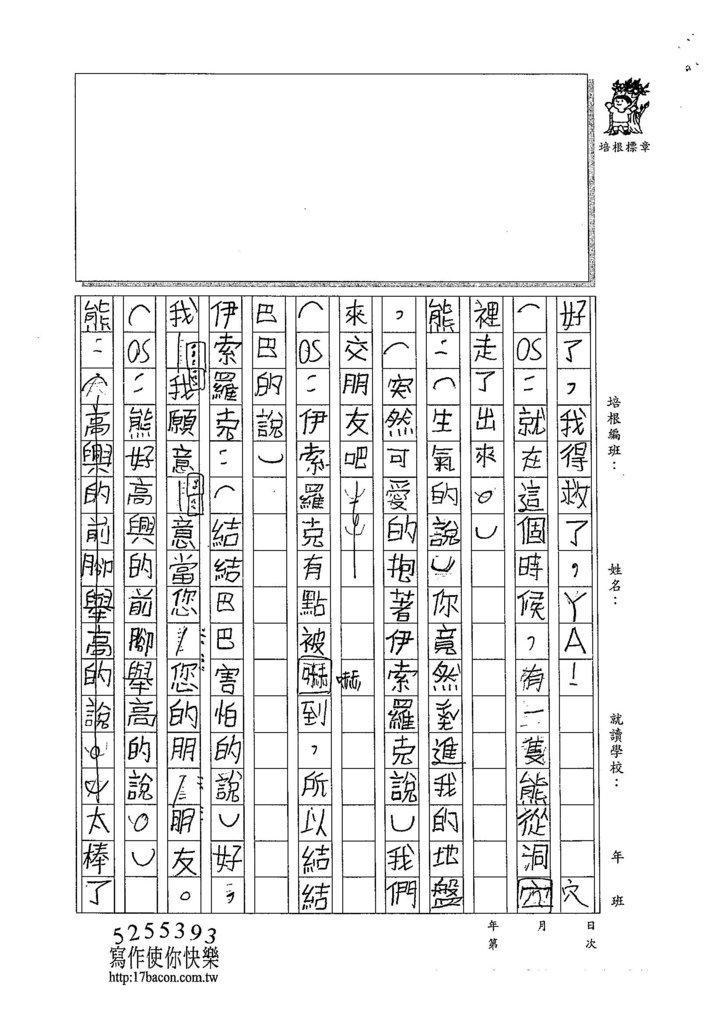 培根標章
好了，我得救了，YA！
（OS：就在這個時候，有一隻熊從洞穴
裡走了出來。）
熊：（生氣的說）你竟然進我的地盤
，（突然可愛的抱著伊索羅克說）我們
來交朋友吧
（OS：伊索羅克有點被嚇到，所以結結
巴巴的說）
伊索羅克：（結結巴巴害怕的說）好，
我……我願意……意當您……您的朋……朋友。
（OS：熊好高興的前腳舉高的說。）
熊：（高興的前腳舉高的說）太棒了
培根編班：
姓名：
就讀學校：
年 班
年 月 日
第 次
5255393
寫作使你快樂
http:17bacon.com.tw